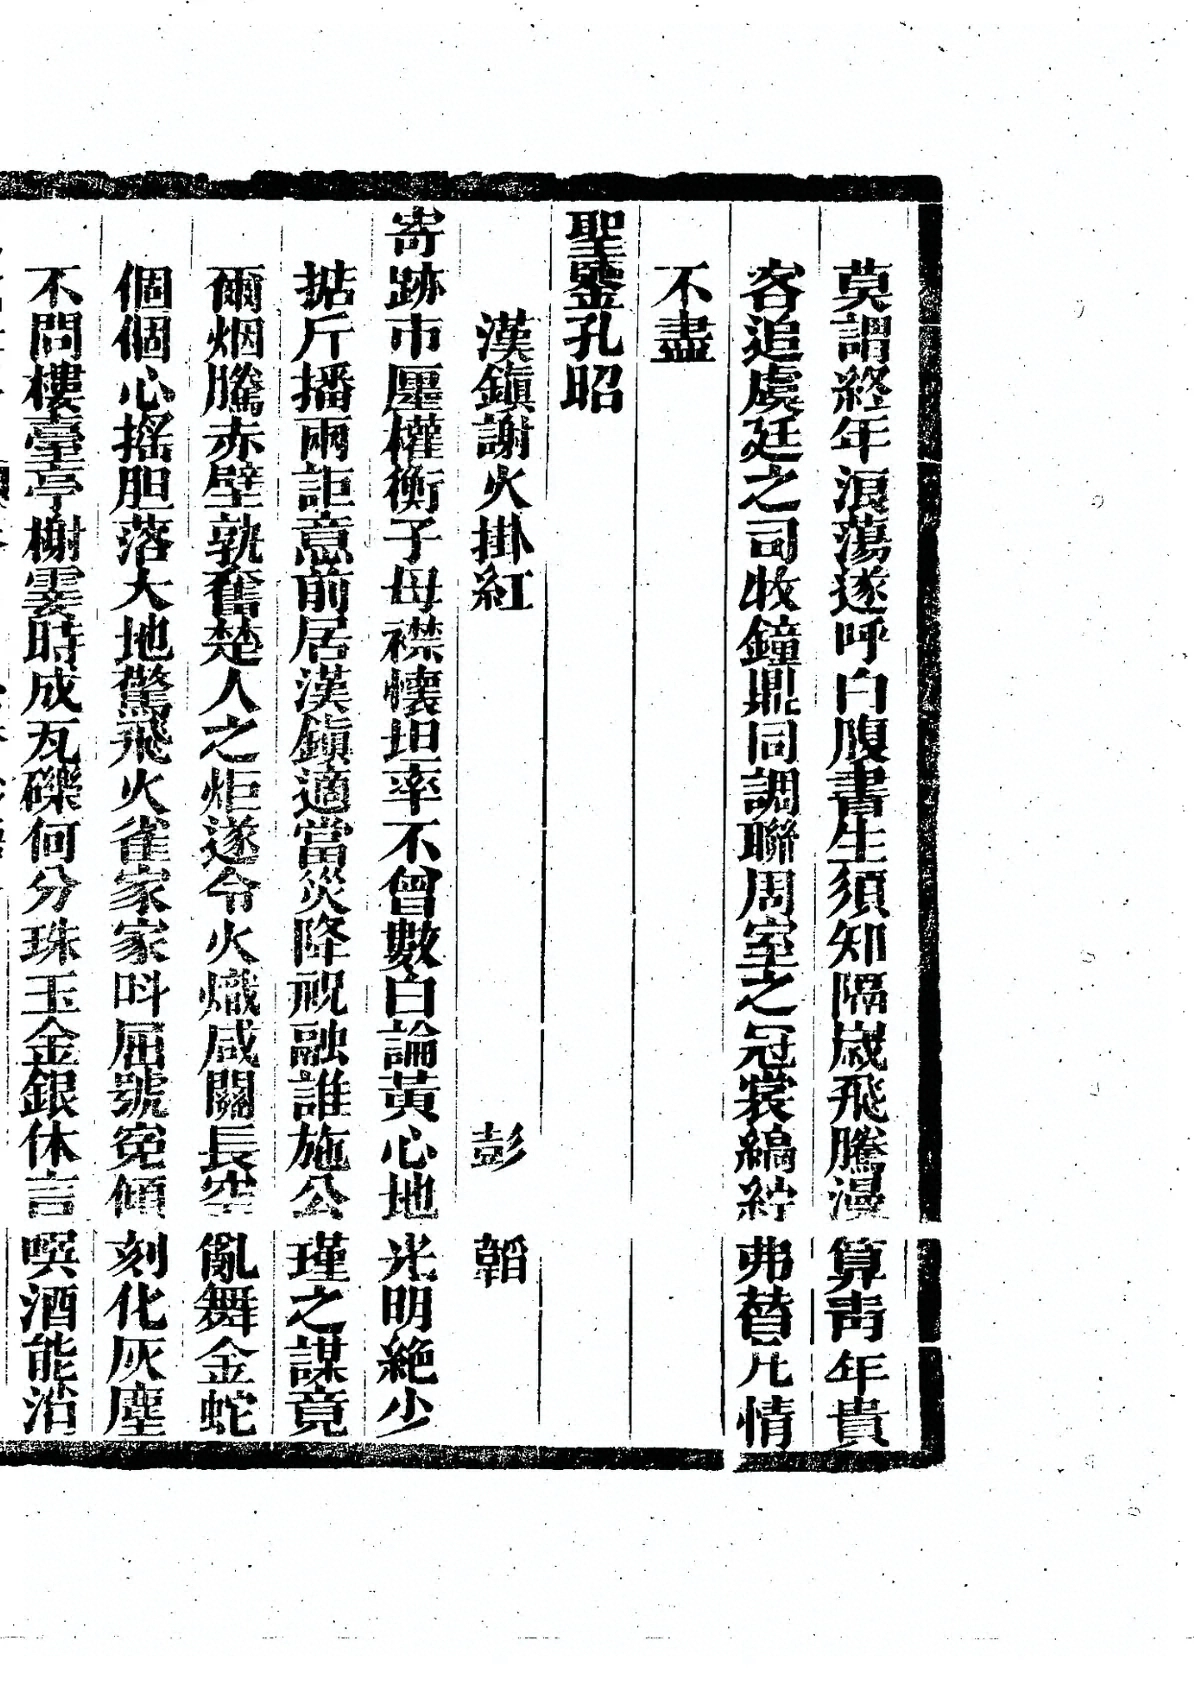 莫謂終年浪蕩遂呼白腹書生須知隔歲飛騰漫算靑年貴
客追虞廷之司牧鐘鼎同調聯周室之冠裳縞紵弗替凡情
不盡
聖鑒孔昭
漢鎮謝火掛紅 彭 韜
寄跡市廛權衡子母襟懷坦率不曾數白論黃心地光明絶少
掂斤播兩詎意前居漢鎮適當災降祝融誰施公瑾之謀竟
爾烟騰赤壁孰奮楚人之炬遂令火熾咸關長空亂舞金蛇
個個心搖胆落大地驚飛火雀家家呌屈號寃傾刻化灰塵
不問樓臺亭榭霎時成瓦礫何分珠玉金銀休言噀酒能沿